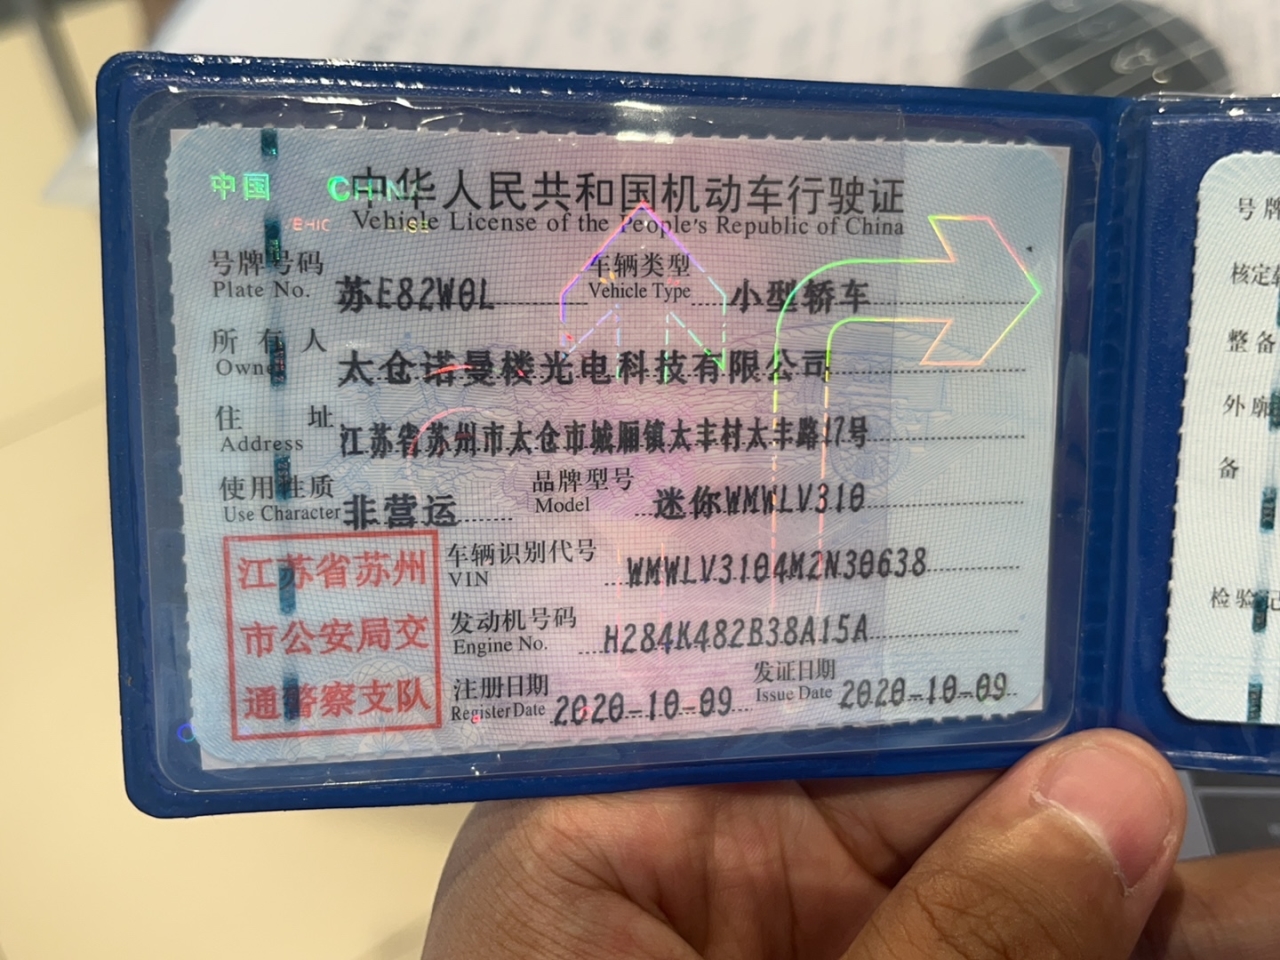 中国 CHINA
中华人民共和国机动车行驶证
Vehicle License of the People's Republic of China
号牌号码 苏E82W0L 车辆类型 小型轿车
Plate No. Vehicle Type
所有人 太仓诺曼楼光电科技有限公司
Owner
住址 江苏省苏州市太仓市城厢镇太丰村太丰路17号
Address
使用性质 非营运 品牌型号 迷你WMWLV310
Use Character Model
江苏省苏州
市公安局交
通警察支队
车辆识别代号 WMWLV3104M2N30638
VIN
发动机号码 H284K482B38A15A
Engine No.
注册日期 2020-10-09 发证日期 2020-10-09
Register Date Issue Date
号牌
核定
整备
外廓
备
检验记